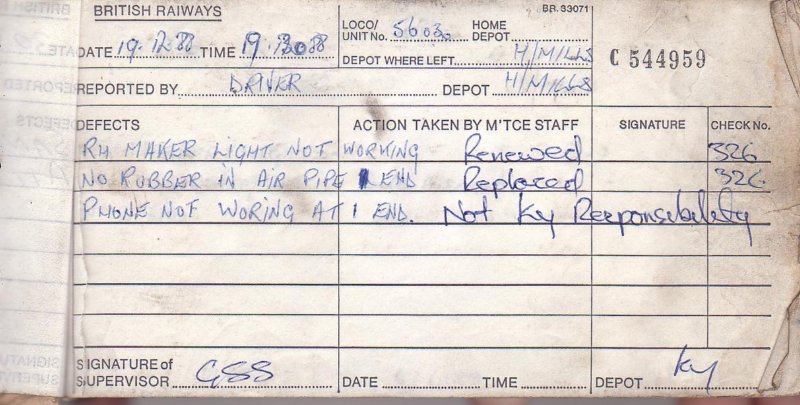 BRITISH RAIWAYS
BR. 33071
DATE 19.12.88 TIME 19.30 88
LOCO/ UNIT No. 56030 HOME DEPOT
DEPOT WHERE LEFT H/MILLS
C 544959
REPORTED BY DRIVER DEPOT H/MILLS
DEFECTS ACTION TAKEN BY M'TCE STAFF SIGNATURE CHECK No.
RH MAKER LIGHT NOT WORKING Renewed 326
NO RUBBER IN AIR PIPE 1 END Replaced 326
PHONE NOT WORING AT 1 END. Not Ky Responsibility
SIGNATURE of SUPERVISOR GSS DATE TIME DEPOT Ky